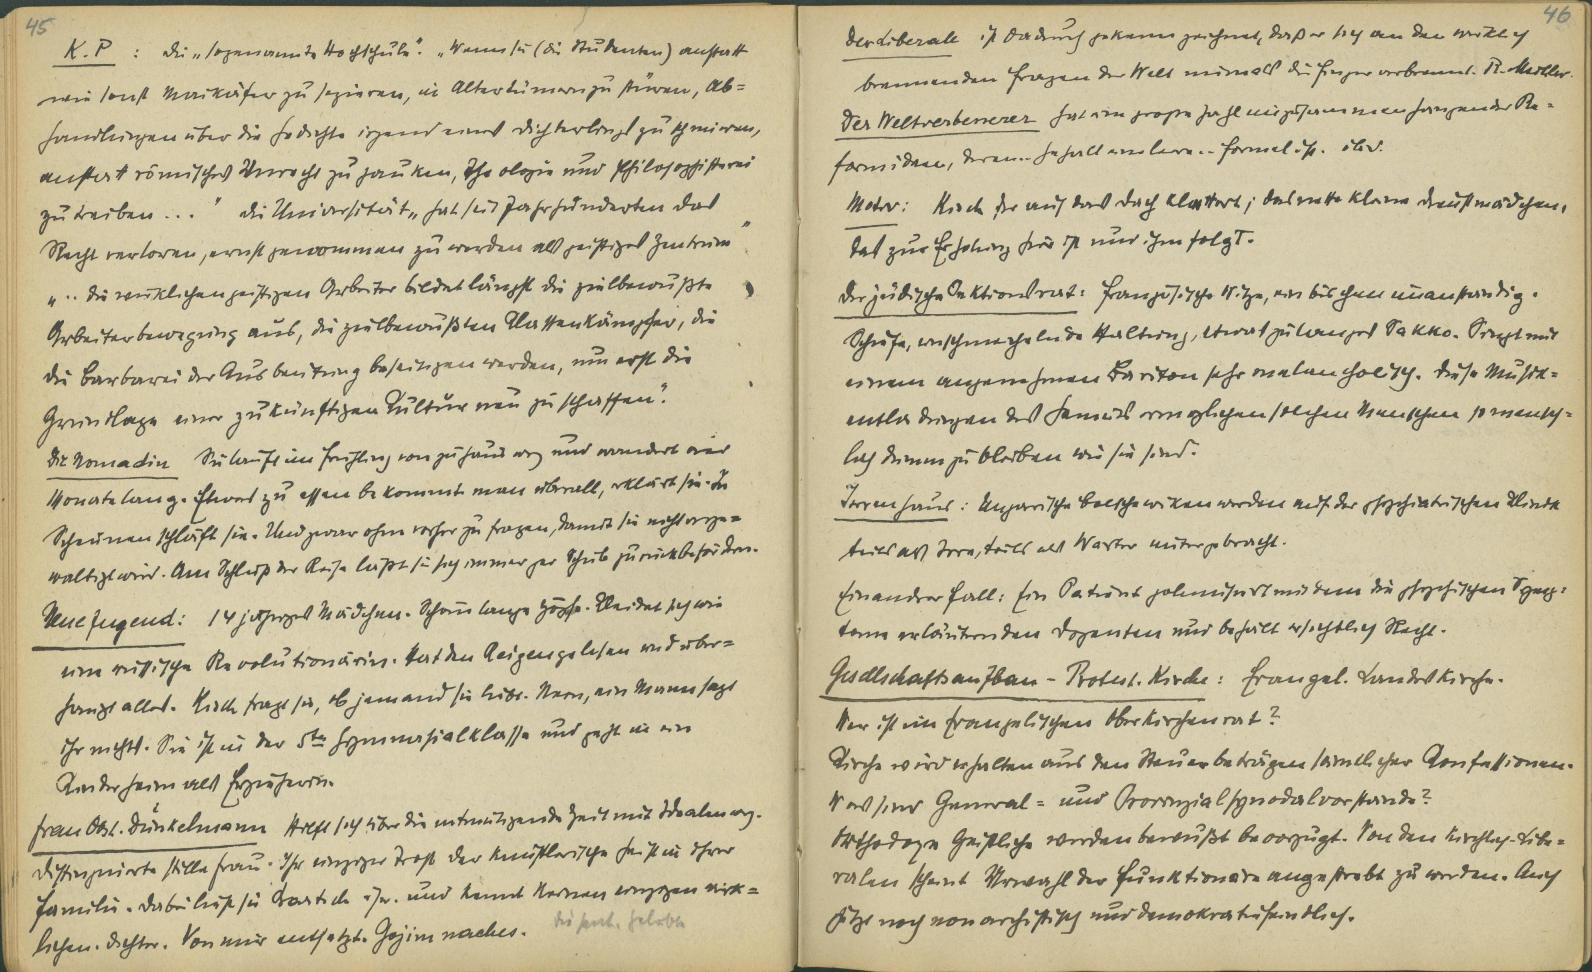 45
K.P : die „sogenannte Hochschule". „Wenn sie (die Studenten) anstatt
wie sonst Maikäfer zu sezieren, in Altertümern zu stüren, Ab=
handlungen über die Gedichte irgend eines Dichterlings zu schmieren,
anstatt römisches Unrecht zu pauken, Theologie und Philosophisterei
zu treiben ..." die Universität „hat seit Jahrhunderten das
Recht verloren, ernst genommen zu werden als geistiges Zentrum"
„.. die wirklichen geistigen Arbeiter bildet längst die zielbewußte
Arbeiterbewegung aus, die zielbewußten Klassenkämpfer, die
die Barbarei der Ausbeutung beseitigen werden, um erst die
Grundlage einer zukünftigen Kultur neu zu schaffen."
Die Nomadin Sie lauft im Frühling von zuhaus weg und wandert vier
Monate lang. Etwas zu essen bekommt man überall, erklärt sie. In
Scheunen schläft sie. Und zwar ohne vorher zu fragen, damit sie nicht verge=
waltigt wird. Am Schluß der Reise läßt sie sich immer per Schub zurückbefördern.
Neue Jugend: 14 jähriges Mädchen. Schöne lange Zöpfe. Kleidet sich wie
eine russische Revolutionärin. Hat den Reigen gelesen und über=
haupt alles. Kisch fragt sie, ob jemand sie liebe. Nein, ein Mann sage
ihr nichts. Sie ist in der 5ten Gymnasialklasse und geht in ein
Kinderheim als Erzieherin.
Frau Obst. Dünkelmann Hilft sich über die entmutigende Zeit mit Idealen weg.
Distinguierte stille Frau. Ihr einziger Trost der künstlerische Geist in ihrer
Familie. Dabei liest sie und kennt keinen einzigen wirk=
lichen Dichter. Von mir entsetzt. Gojim naches.
46
Der Liberale ist dadurch gekennzeichnet, daß er sich an den wirklich
brennenden Fragen der Welt niemals die Finger verbrennt. R. Müller.
Der Weltverbesserer hat eine große Zahl unzusammenhängender Re=
formideen, deren .. Gehalt eine leere .. Formel ist. ibid.
Motiv: Kisch der auf das Dach klettert; das nette kleine Dienstmädchen,
das zur Erholung hier ist und ihm folgt.
Der jüdische Sektionsrat: Französische Witze, ein bischen unanständig.
Schiefe, einschmeichelnde Haltung, etwas zu langes Sakko. Singt mit
einem angenehmen Bariton sehr melancholisch. Diese Musik=
entladungen des Gemüts ermöglichen solchen Menschen so mensch=
lich dumm zu bleiben wie sie sind.
Irrenhaus: Ungarische Bolschewiken werden auf der psychiatrischen Klinik
teils als Irre, teils als Wärter untergebracht.
Ein andrer Fall: Ein Patient polemisiert mit dem die psychischen Symp=
tome erläuternden Dozenten und behält ersichtlich Recht.
Gesellschaftsaufbau - Protest. Kirche: Evangel. Landeskirche.
Wer ist im Evangelischen Oberkirchenrat?
Kirche wird erhalten aus den Steuerbeträgen sämtlicher Konfessionen.
Was sind General= und Provinzialsynodalvorstände?
Orthodoxe Geistliche werden bewußt bevorzugt. Von den kirchlich-Libe=
ralen scheint Urwahl der Funktionäre angestrebt zu werden. Auch
jetzt noch monarchistisch und demokratiefeindlich.